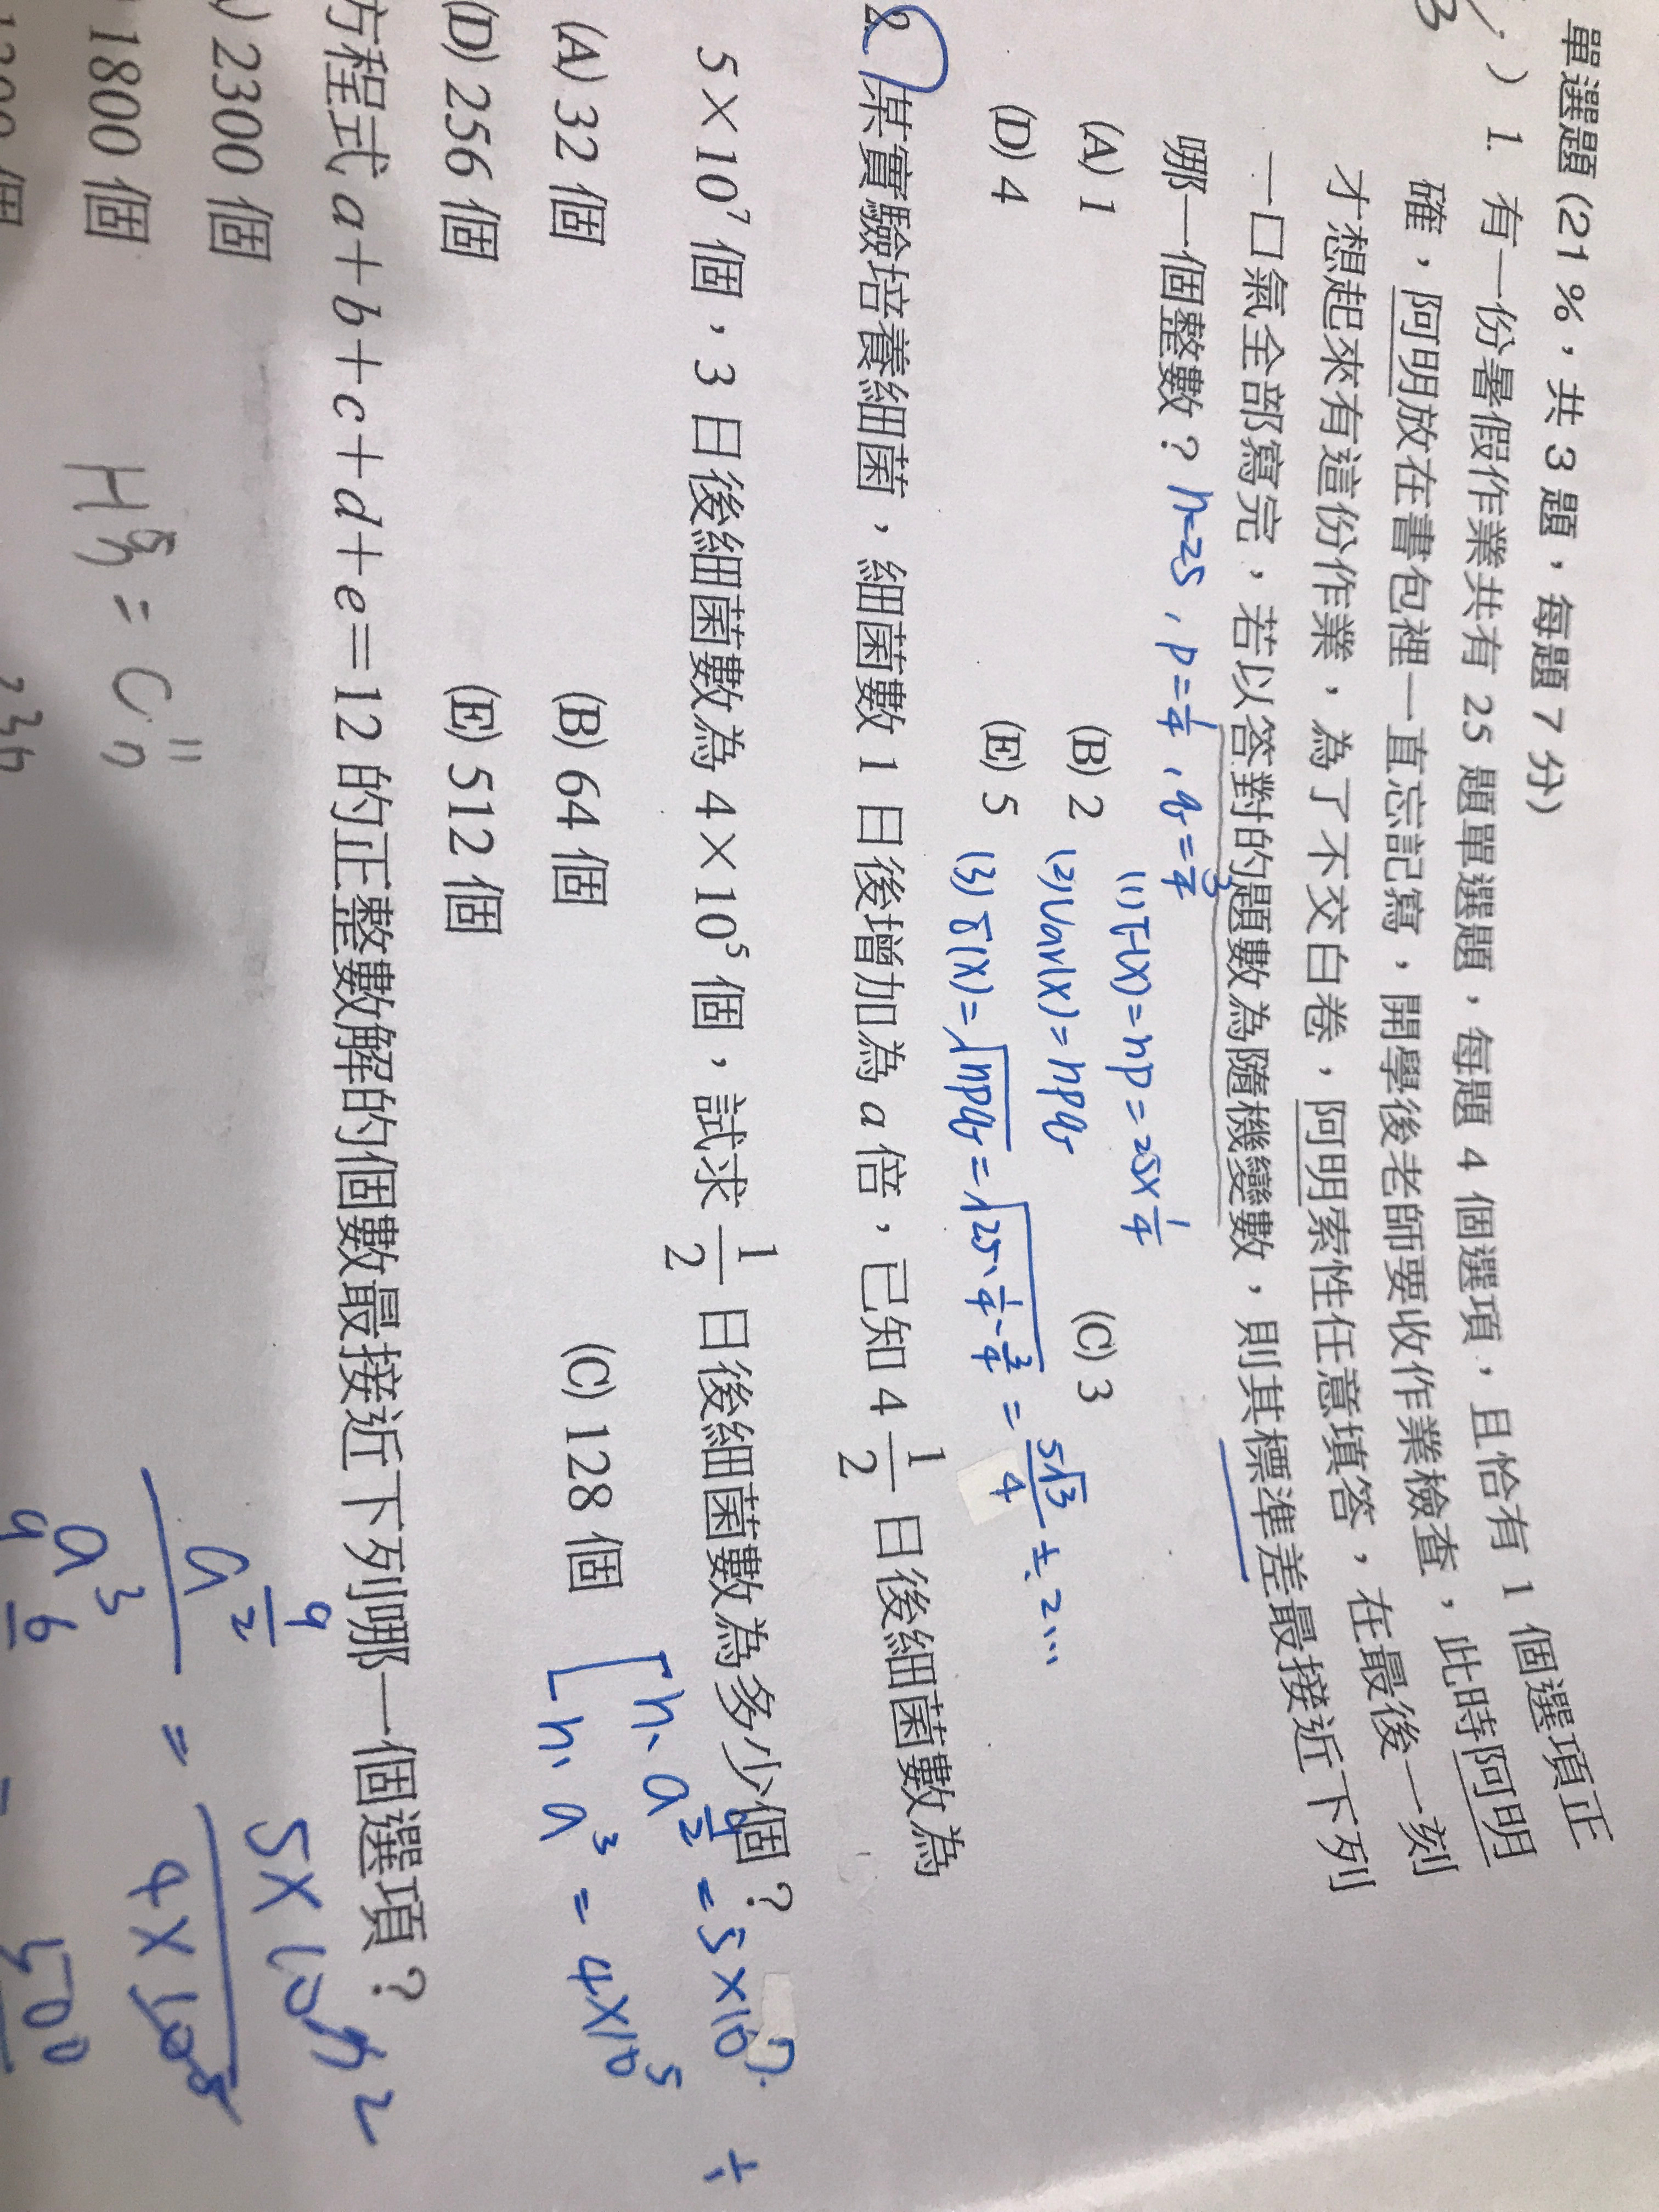 單選題(21%，共3題，每題7分)
) 1. 有一份暑假作業共有25題單選題，每題4個選項，且恰有1個選項正
確，阿明放在書包裡一直忘記寫，開學後老師要收作業檢查，此時阿明
才想起來有這份作業，為了不交白卷，阿明索性任意填答，在最後一刻
一口氣全部寫完，若以答對的題數為隨機變數，則其標準差最接近下列
哪一個整數？ n=25, p=1/4, q=3/4
(1) E(X)=np=25×1/4
(A) 1 (B) 2 (C) 3
(2) Var(X)=npq
(D) 4 (E) 5
(3) σ(X)=√npq=√25·1/4·3/4=5√3/4≒2...
2. 某實驗培養細菌，細菌數1日後增加為a倍，已知4 1/2 日後細菌數為
5×10⁷個，3日後細菌數為4×10⁵個，試求 1/2 日後細菌數為多少個？
(A) 32個 (B) 64個 (C) 128個
n·a^(9/2)=5×10⁷
n·a³=4×10⁵
÷
(D) 256個 (E) 512個
方程式a+b+c+d+e=12的正整數解的個數最接近下列哪一個選項？
) 2300個
1800個
a^(9/2)/a³=5×10⁷/4×10⁵
2